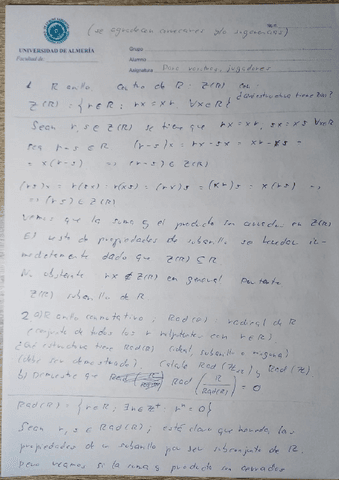 (se agradecen correcciones y/o sugerencias)
UNIVERSIDAD DE ALMERÍA
Facultad de
Grupo
Alumno
Asignatura Para nuestros jugadores
1. R anillo, centro de R Z(R) en
Z(R) = {r∈R; rx=xr ∀x∈R} ¿Qué estructura tiene Z(R)?
Sean r, s ∈ Z(R) se tiene que rx = xr, sx = xs ∀x∈R
sea r-s ∈ R (r-s)x = rx-sx = xr-xs =
= x(r-s) => r-s ∈ Z(R)
(rs)x = r(sx) = r(xs) = (rx)s = (xr)s = x(rs) =>
=> (rs) ∈ Z(R)
vemos que la suma y el producto son cerrados en Z(R)
El resto de propiedades de subanillo se heredan in-
mediatamente dado que Z(R) ⊆ R
No obstante rx ∉ Z(R) en general por tanto
Z(R) subanillo de R
2. a) R anillo conmutativo; Rad(R) = radical de R
(conjunto de todos los r nilpotentes con r∈R)
¿Qué estructura tiene Rad(R) (ideal, subanillo o ninguna)
(debe ser demostrado) Calcule Rad(Z) y Rad(Z)
b) Demuestre que Rad(R/Rad(R)) = 0
Rad(R) = {r∈R; ∃n∈Z⁺ rⁿ = 0}
Sean r, s ∈ Rad(R); está claro que hereda las
propiedades de un subanillo por ser subconjunto de R.
pero veamos si la suma y producto son cerrados